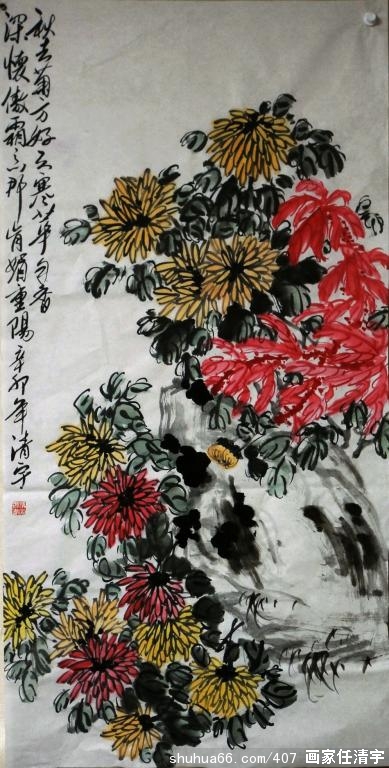 秋去菊方好天寒华自香
深懷傲霜意那肯媚重陽辛卯年清宇
shuhua66.com/407 画家任清宇